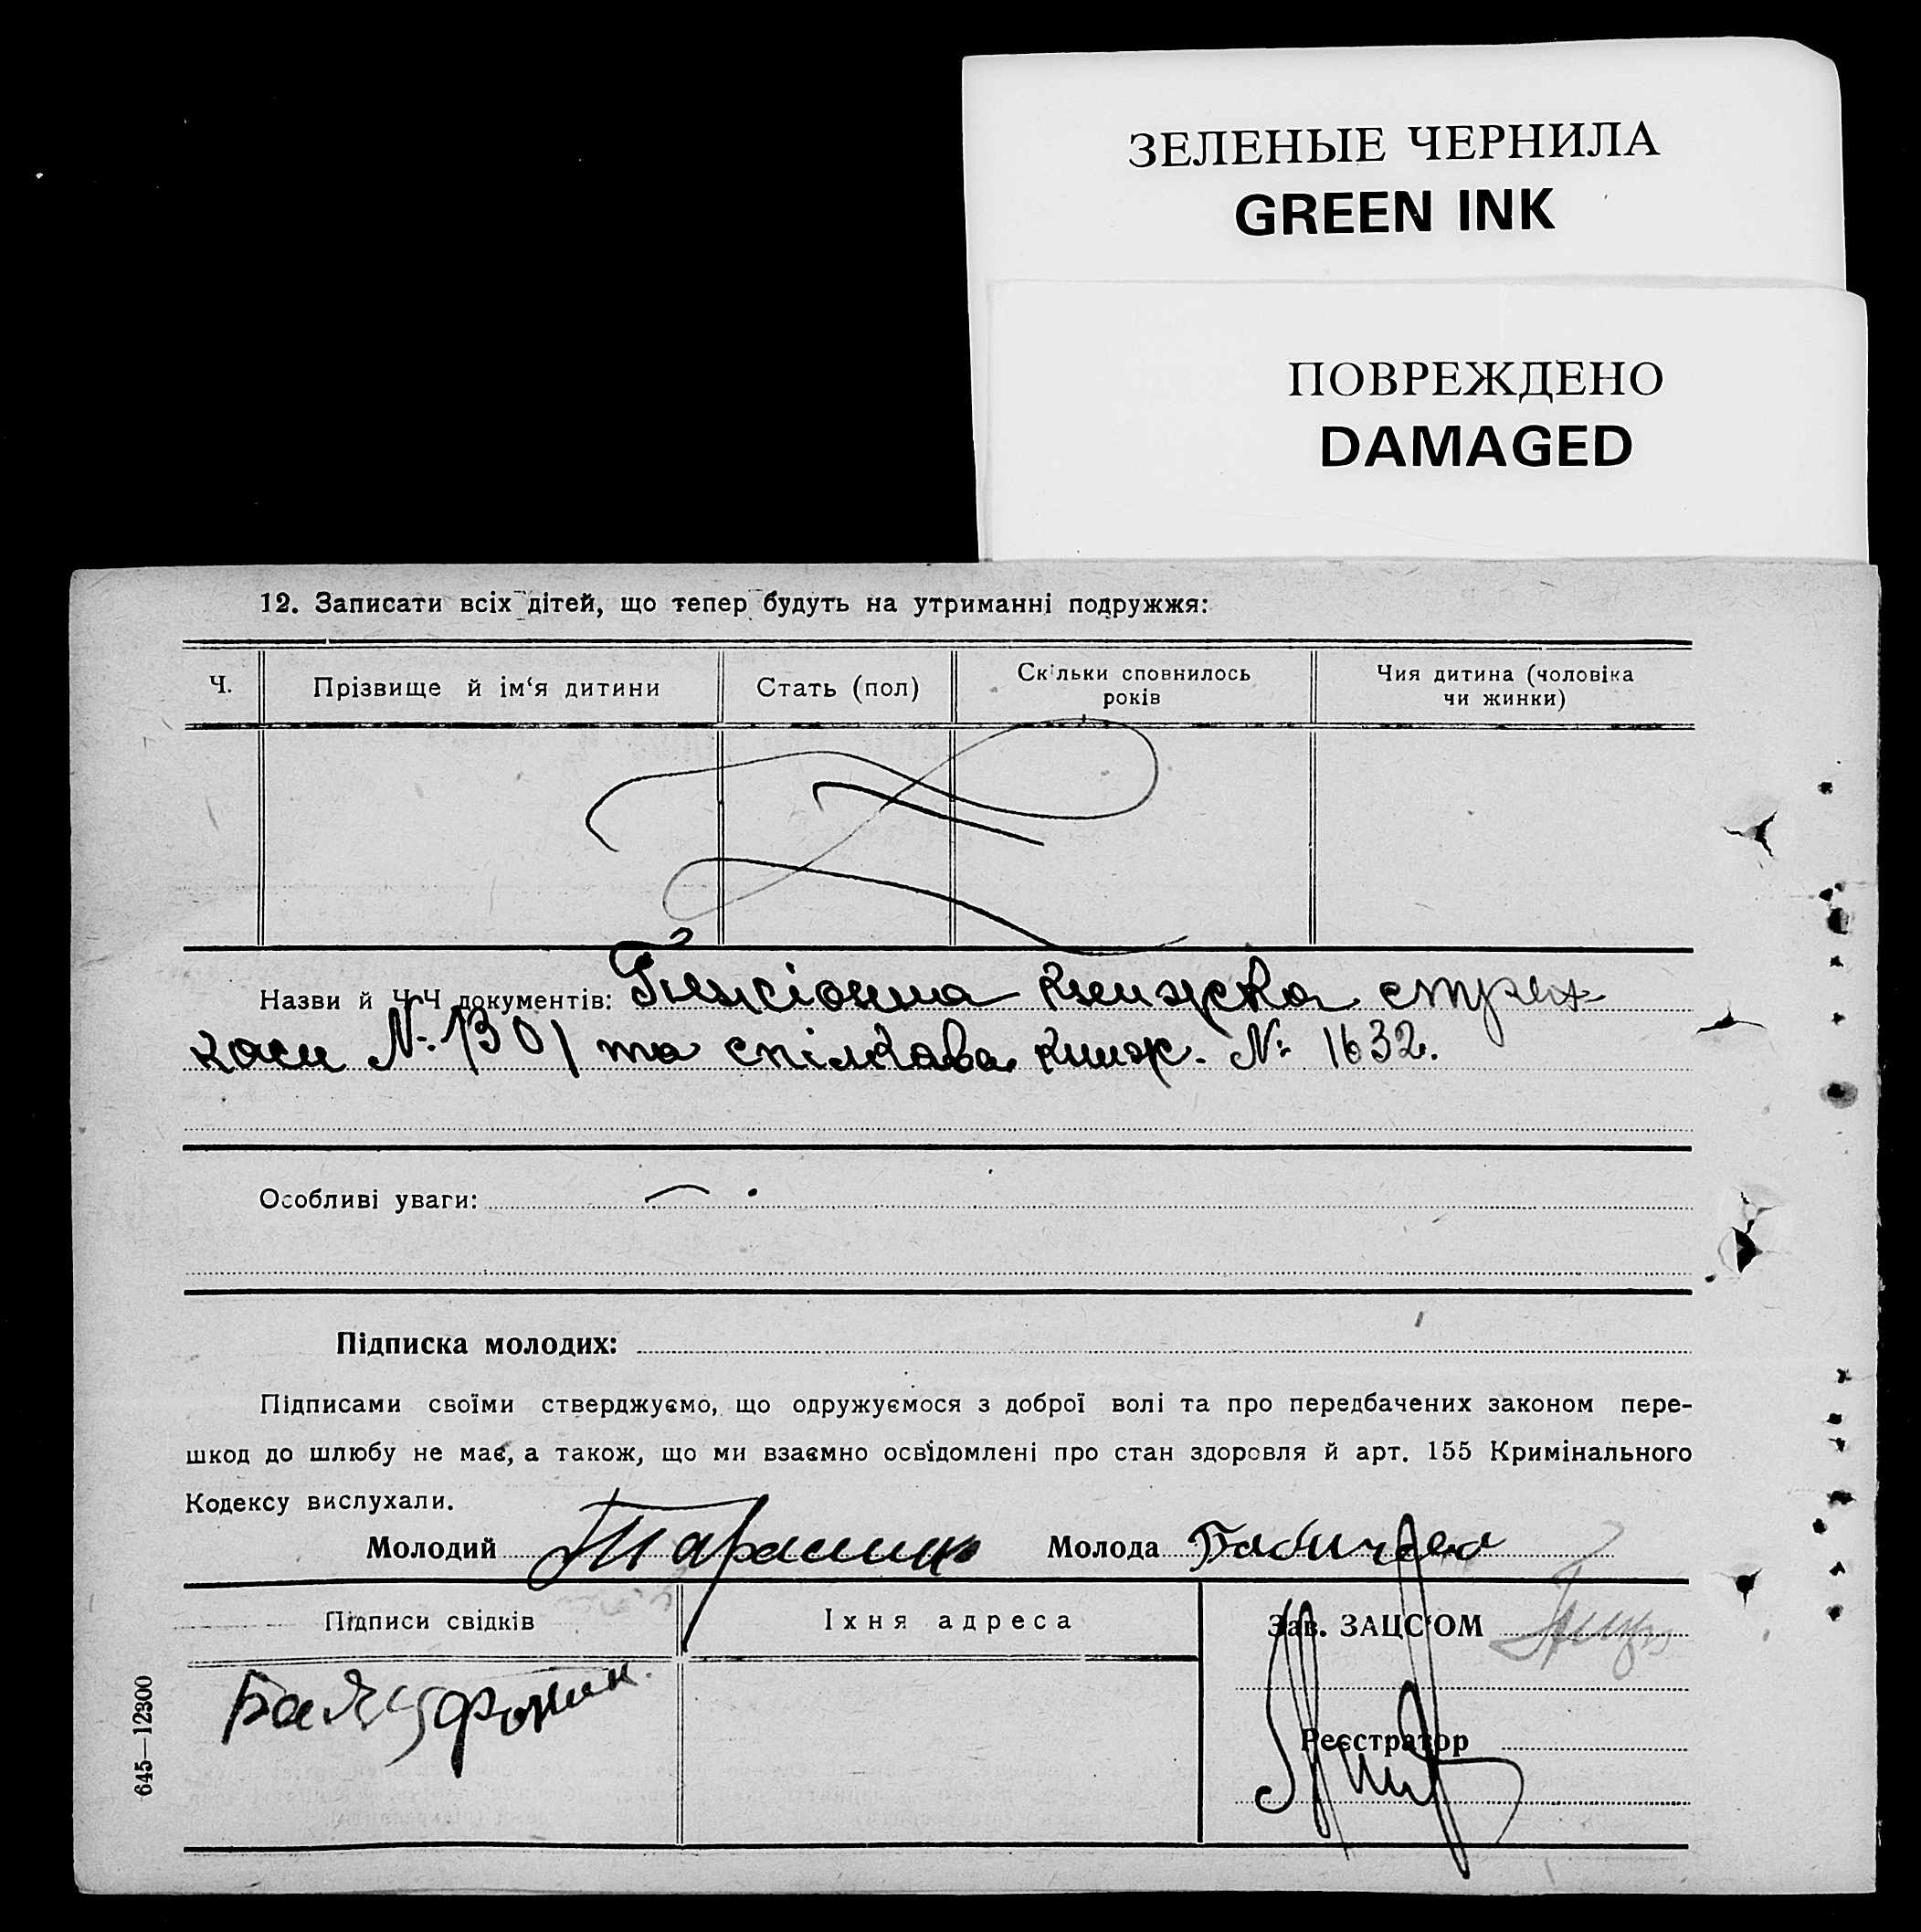 ЗЕЛЕНЫЕ ЧЕРНИЛА
GREEN INK
ПОВРЕЖДЕНО
DAMAGED
12. Записати всіх дітей, що тепер будуть на утриманні подружжя:
Ч.
Прізвище й ім‘я дитини
Стать (пол)
Скільки сповнилось
років
Чия дитина (чоловіка
чи жинки)
Назви й Ч.Ч документів: Пенсіонна книжка страх
каси №. 1301 та спілкова книж. №: 1632.
Особливі уваги:
Підписка молодих:
Підписами своїми стверджуємо, що одружуємося з доброї волі та про передбачених законом пере-
шкод до шлюбу не має, а також, що ми взаємно освідомлені про стан здоровля й арт. 155 Кримінального
Кодексу вислухали.
Молодий Молода
Підписи свідків
Іхня адреса
Зав. ЗАЦС‘ОМ
Реєстратор
645—12300